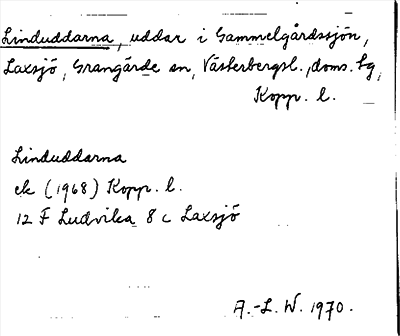 Linduddarna, uddar i Gammelgårdssjön,
Laxsjö, Grangärde sn, Västerbergsl., doms. tg,
Kopp. l.
Linduddarna
ek (1968) Kopp. l.
12 F Ludvika 8 c Laxsjö
A.-L. W. 1970.